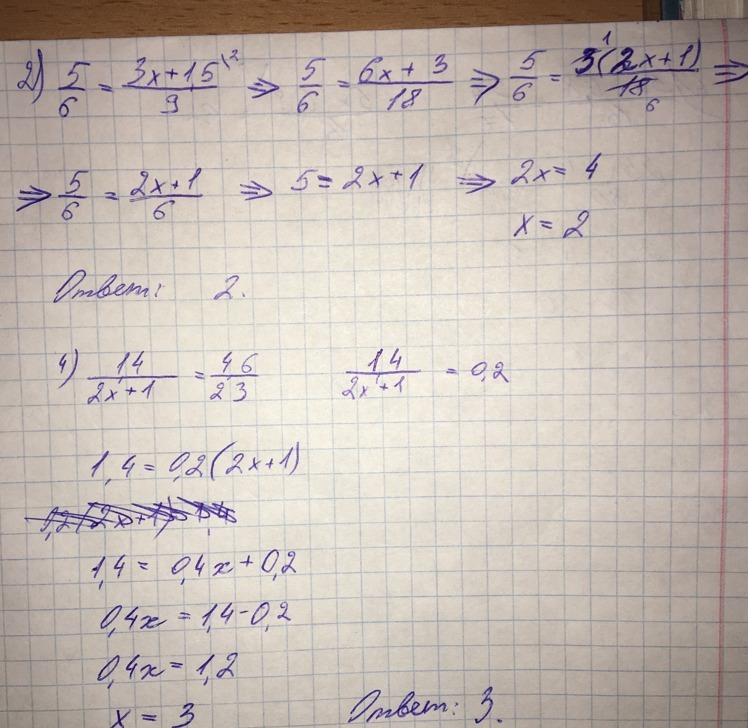 2) 5/6 = (3x+1,5\²)/9 ⇒ 5/6 = (6x+3)/18 ⇒ 5/6 = 3¹(2x+1)/18₆ ⇒
⇒ 5/6 = (2x+1)/6 ⇒ 5 = 2x+1 ⇒ 2x = 4
x = 2
Ответ: 2.
4) 1,4/(2x+1) = 4,6/23 1,4/(2x+1) = 0,2
1,4 = 0,2(2x+1)
1,4 = 0,4x+0,2
0,4x = 1,4-0,2
0,4x = 1,2
x = 3 Ответ: 3.